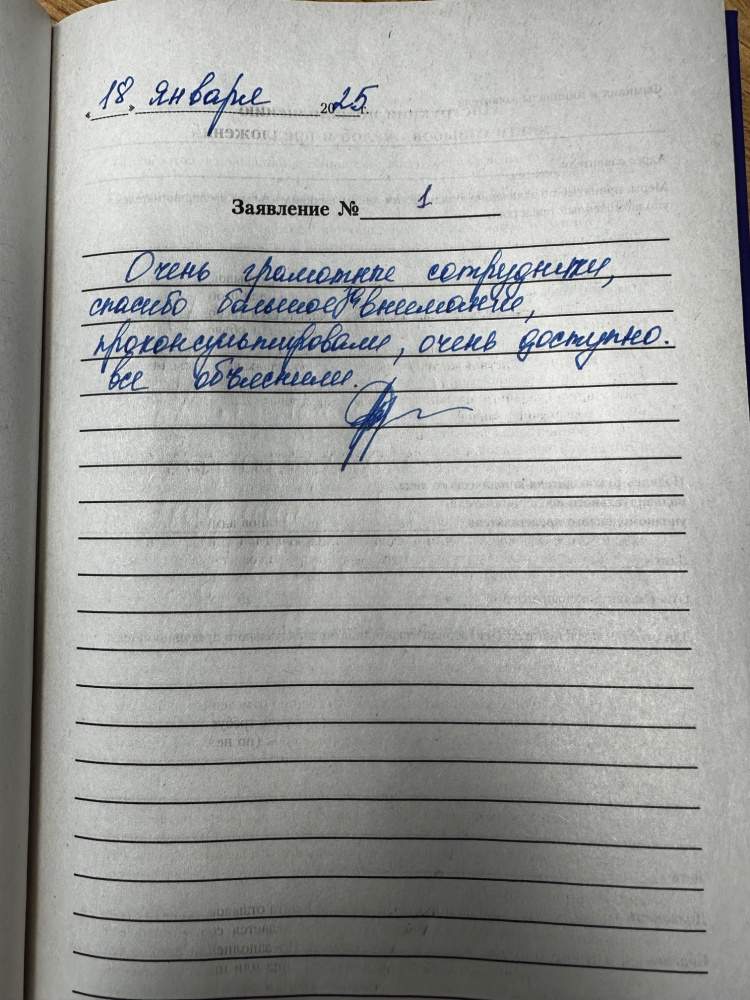 "18" января 2025 г.
Заявление № 1
Очень грамотные сотрудники,
спасибо большое за внимание,
проконсультировали, очень доступно.
все объяснили.